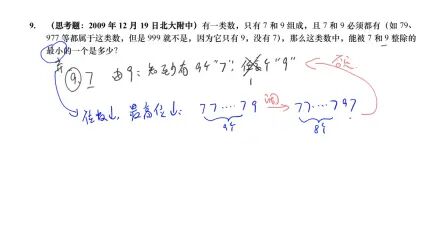 9. (思考题：2009 年 12 月 19 日北大附中) 有一类数，只有 7 和 9 组成，且 7 和 9 必须都有 (如 79、
977 等都属于这类数，但是 999 就不是，因为它只有 9，没有 7)，那么这类数中，能被 7 和 9 整除的
最小的一个是多少？
9. 7 由 9: 知至少有 9个“7”. 1个“9”
位数小, 最高位小: 77……79 → 77……797
9个 8个